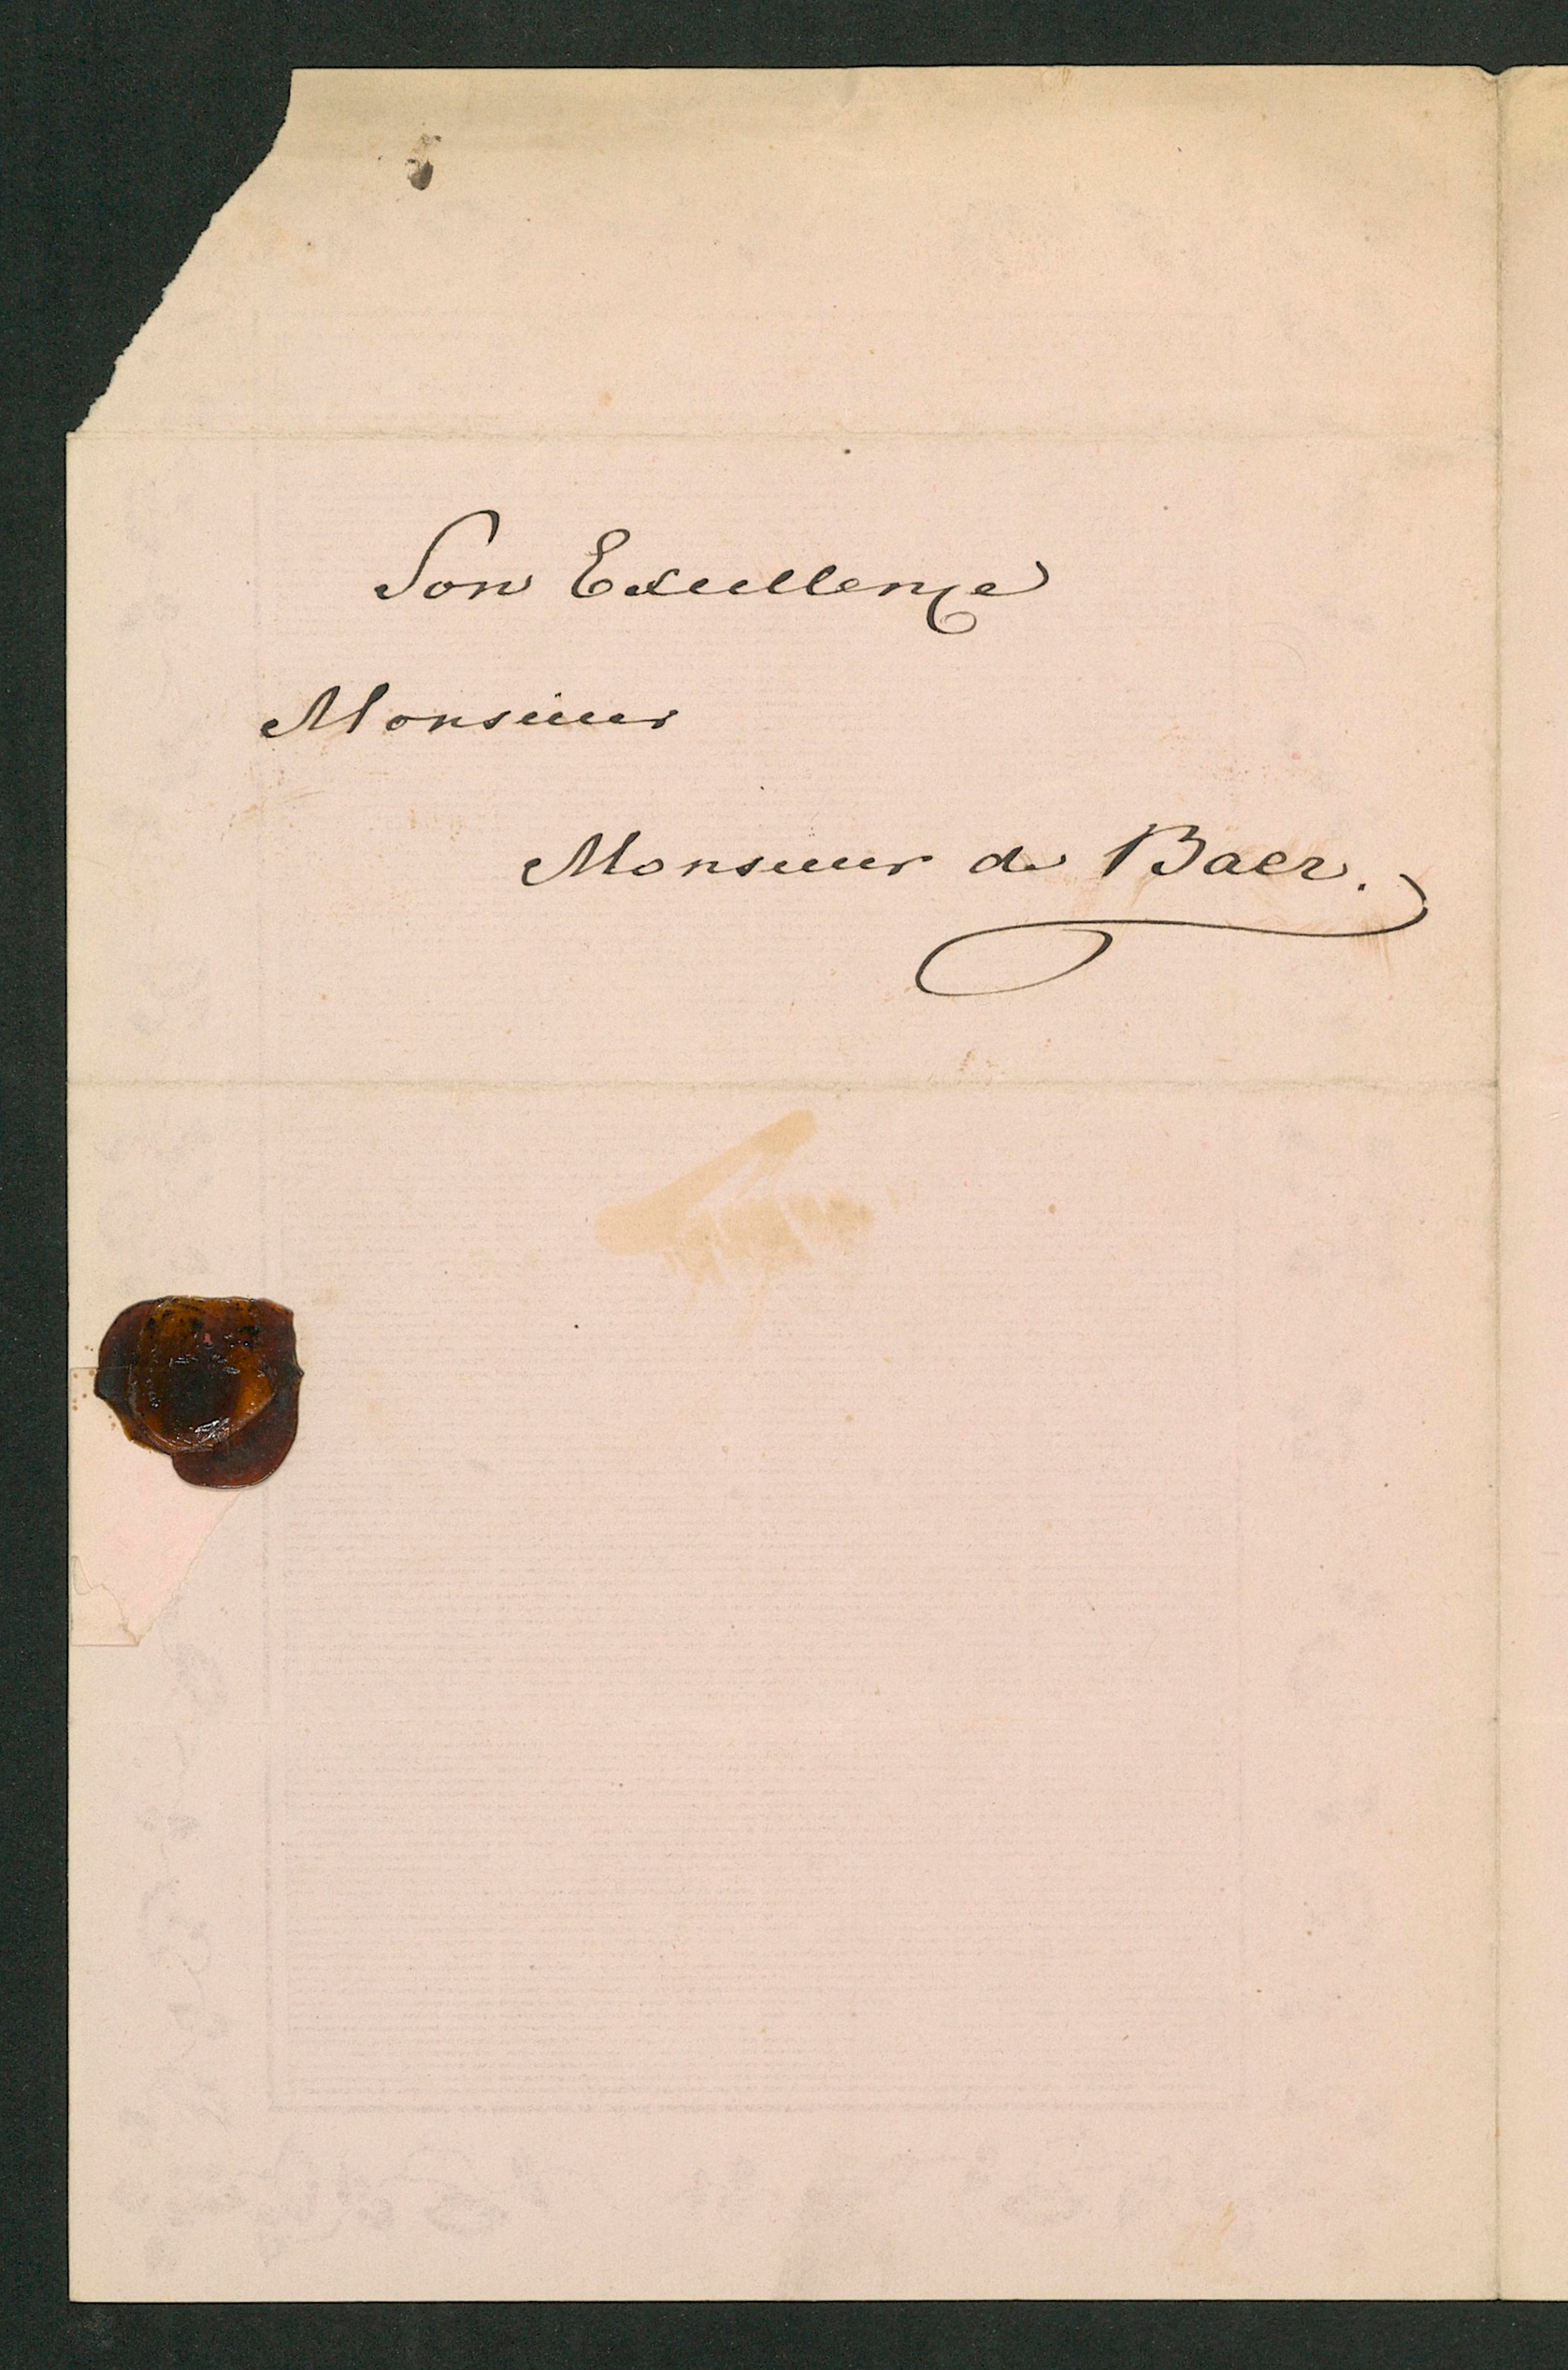 Son Excellençe
Monsieur
Monsieur de Baer.